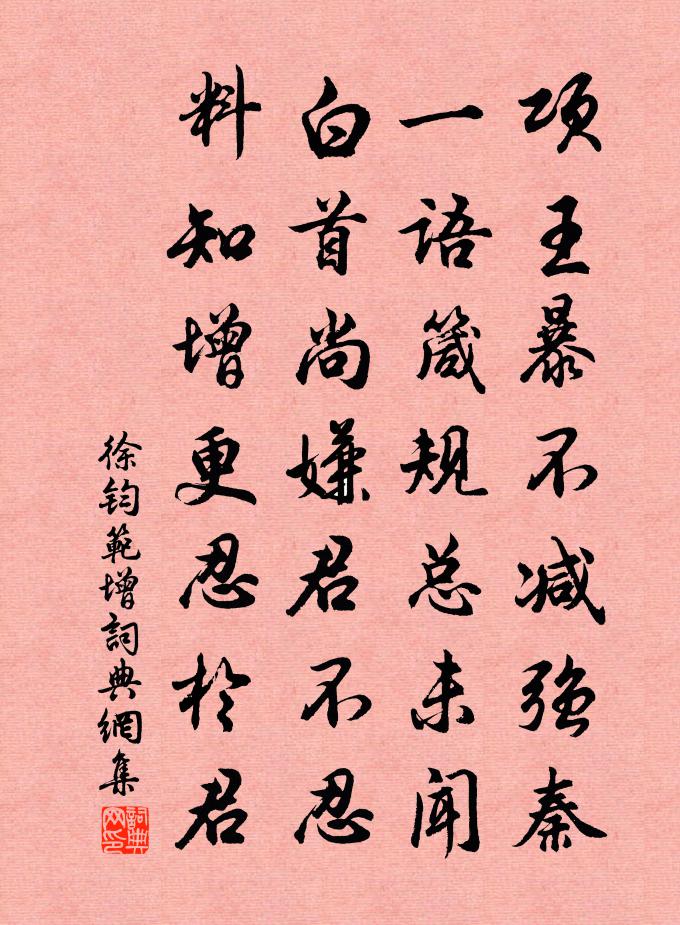 项王暴不减强秦
一语箴规总未闻
白首尚嫌君不忍
料知增更忍於君
徐钧範增詞典網集
詞典网印